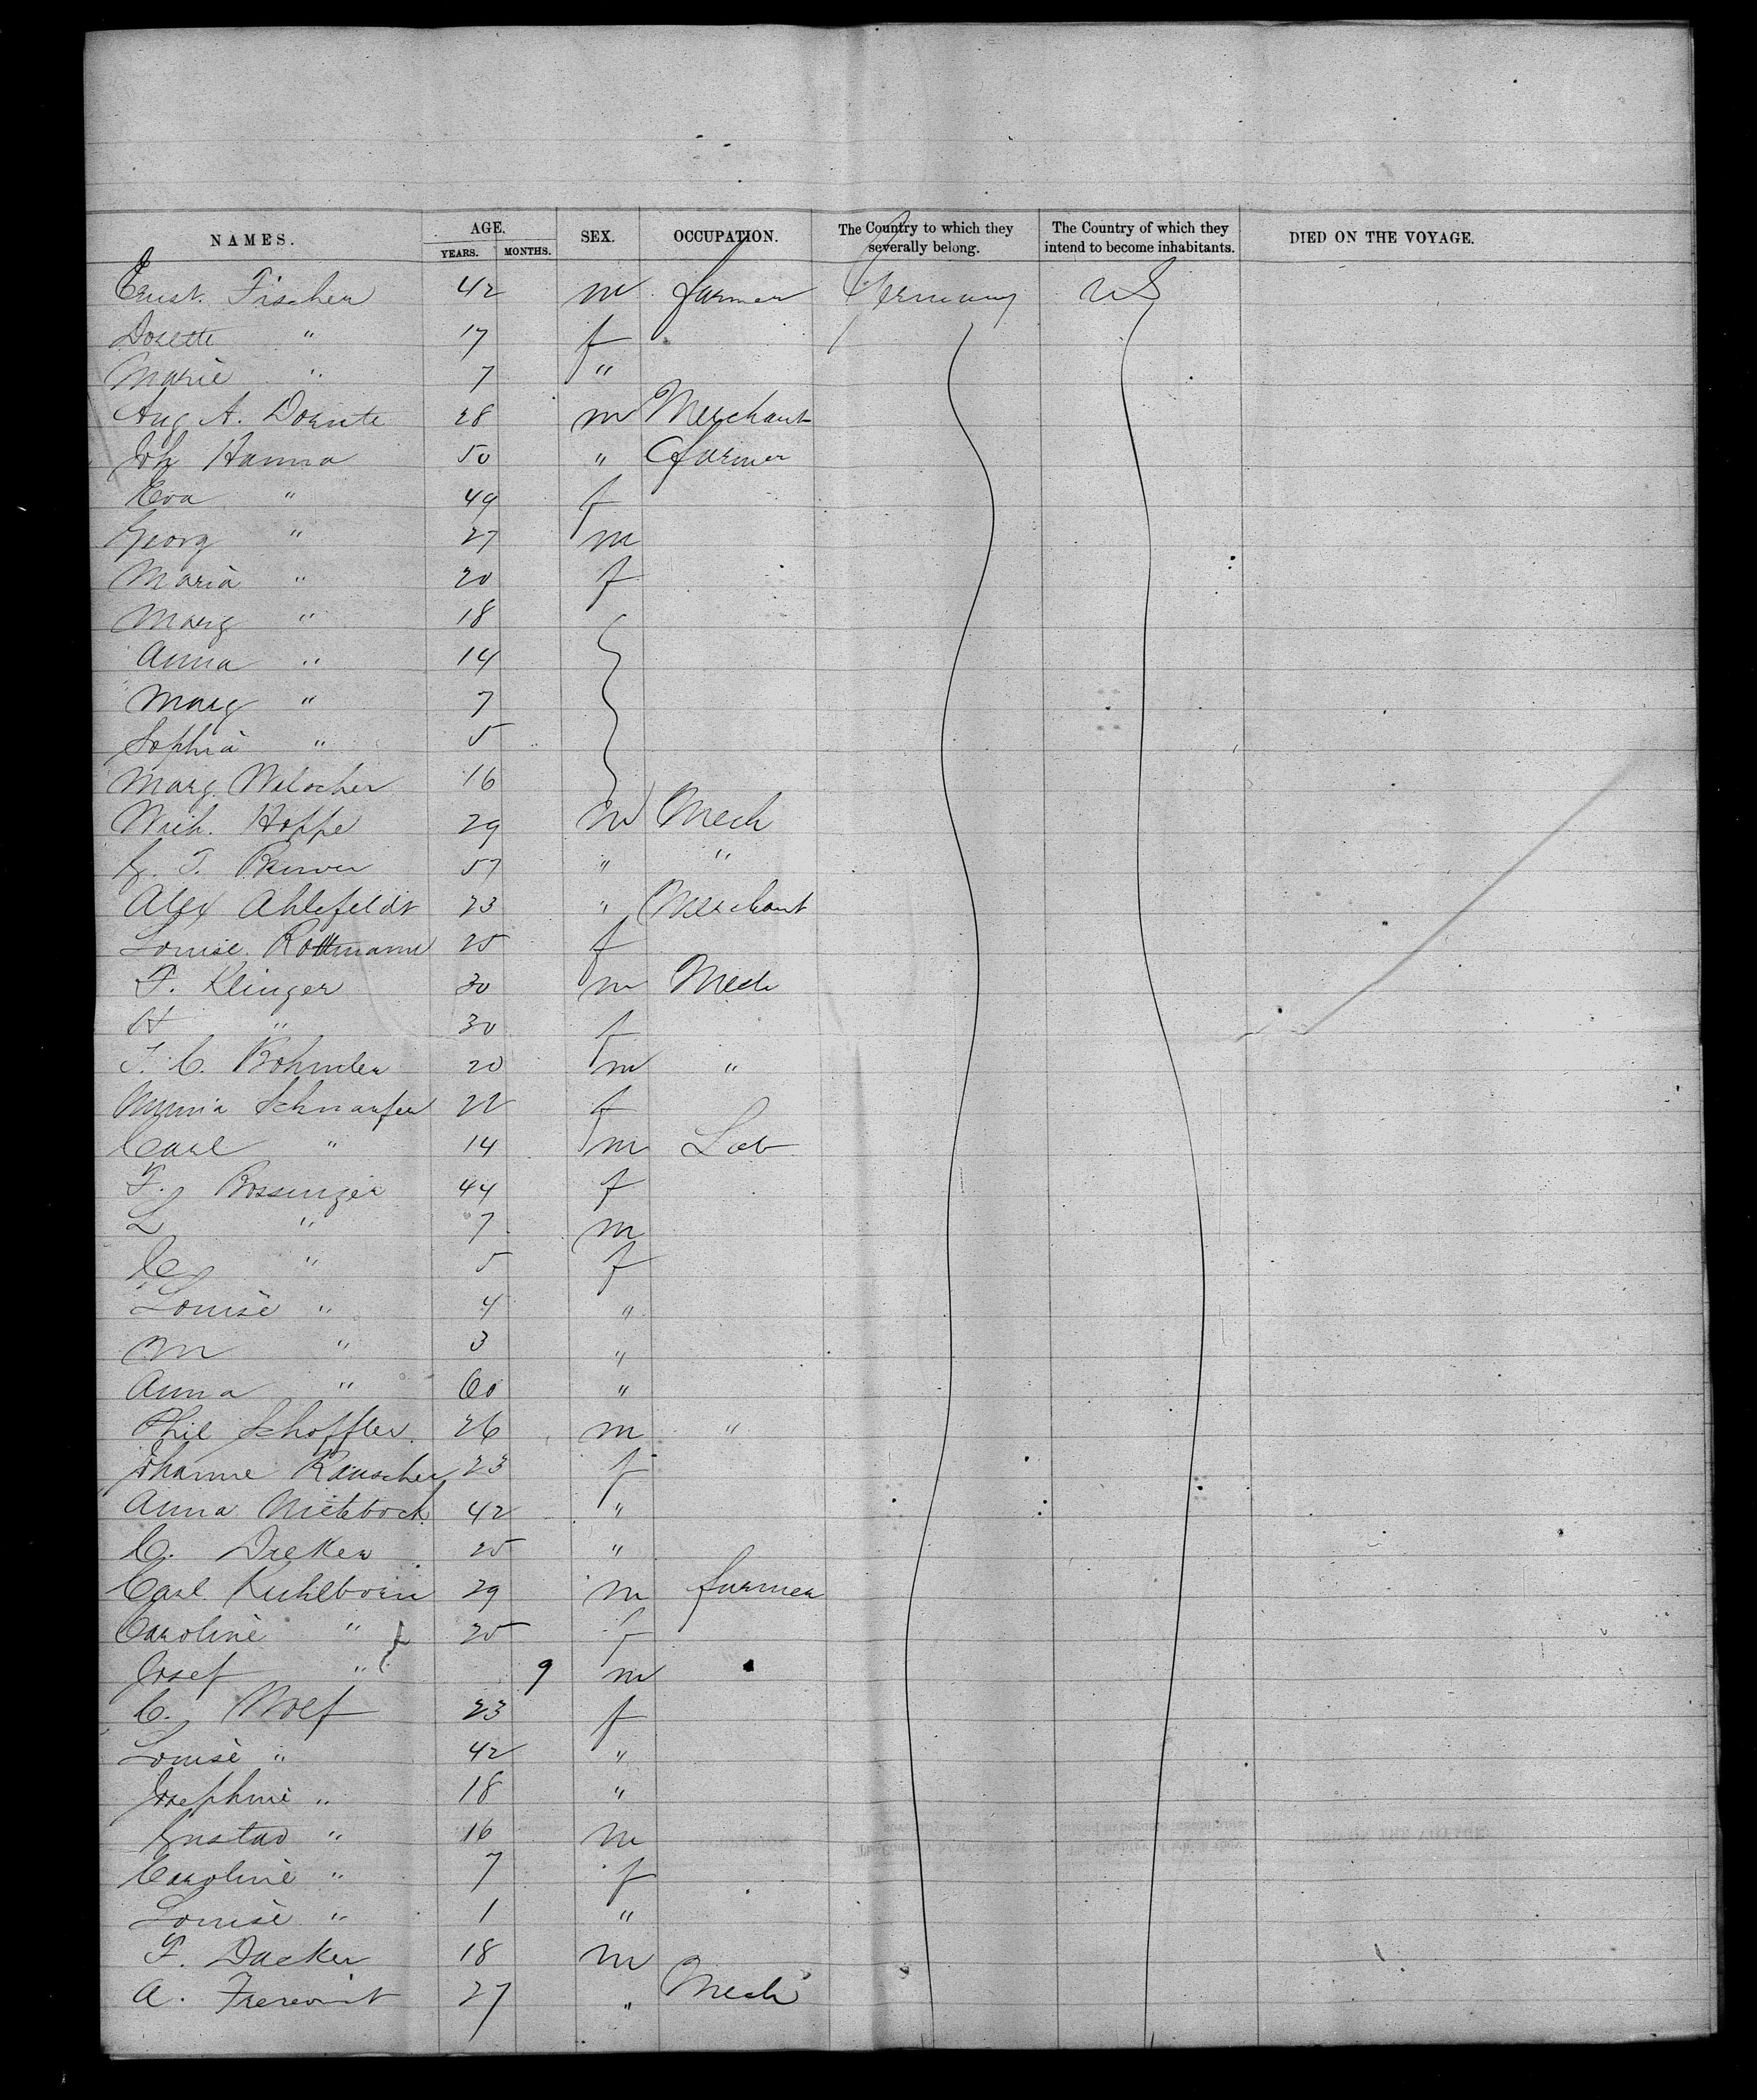 NAMES. AGE. YEARS. MONTHS. SEX. OCCUPATION. The Country to which they severally belong. The Country of which they intend to become inhabitants. DIED ON THE VOYAGE.
Ernst. Fischer 42 m farmer Germany US
Dorette " 17 f
Marie " 7 "
Aug A. Dornte 28 m Merchant
Joh Hanna 50 " farmer
Eva " 49 f
Georg " 27 m
Maria " 20 f
Marg " 18
Anna " 14
Marg " 7
Sophia " 5
Marg. 16
Mich. Hoppe 29 m Mech
G. T. 57 " "
Alex Ahlefeldt 23 " Merchant
Louise Rottmann 25 f
F. Klinger 30 m Mech
H " 30 f
F. C. Bohmler 20 m "
Minna Schnaufer 22 f
Carl " 14 m Lab
F. Bossinger 44 f
L " 7 m
C " 5 f
Louise " 4 "
M " 3 "
Anna " 60 "
Phil Schoffler 26 m "
Johanne Rauscher 23 f
Anna 42 "
C. Dreker 25 "
Carl Kuhlborn 29 m farmer
Caroline " 25 f
Josef " 9 m
C. Wolf 23 f
Louise " 42 "
Josephine " 18 "
Gustav " 16 m
Caroline " 7 f
Louise " 1 "
F. Dacker 18 m
A. 27 " Mech